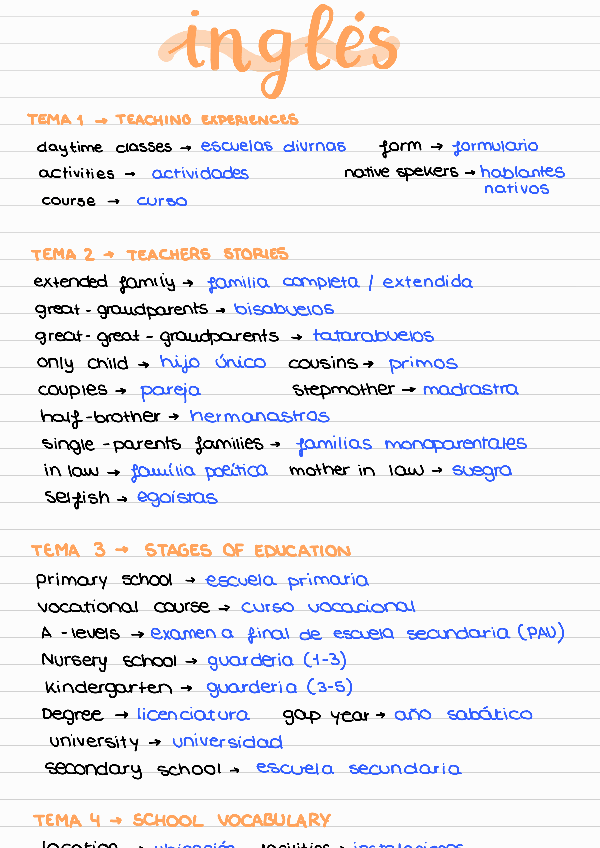 inglés
TEMA 1 → TEACHING EXPERIENCES
daytime classes → escuelas diurnas form → formulario
activities → actividades native spekers → hablantes
nativos
course → curso
TEMA 2 → TEACHERS STORIES
extended family → familia completa / extendida
great-grandparents → bisabuelos
great-great-grandparents → tatarabuelos
only child → hijo único cousins → primos
couples → pareja stepmother → madrastra
half-brother → hermanastros
single-parents families → familias monoparentales
in law → família poeítica mother in law → suegra
selfish → egoístas
TEMA 3 → STAGES OF EDUCATION
primary school → escuela primaria
vocational course → curso vocacional
A-levels → examen a final de escuela secundaria (PAU)
Nursery school → guarderia (1-3)
kindergarten → guarderia (3-5)
Degree → licenciatura gap year → año sabático
university → universidad
secondary school → escuela secundaria
TEMA 4 → SCHOOL VOCABULARY
location → ubicación